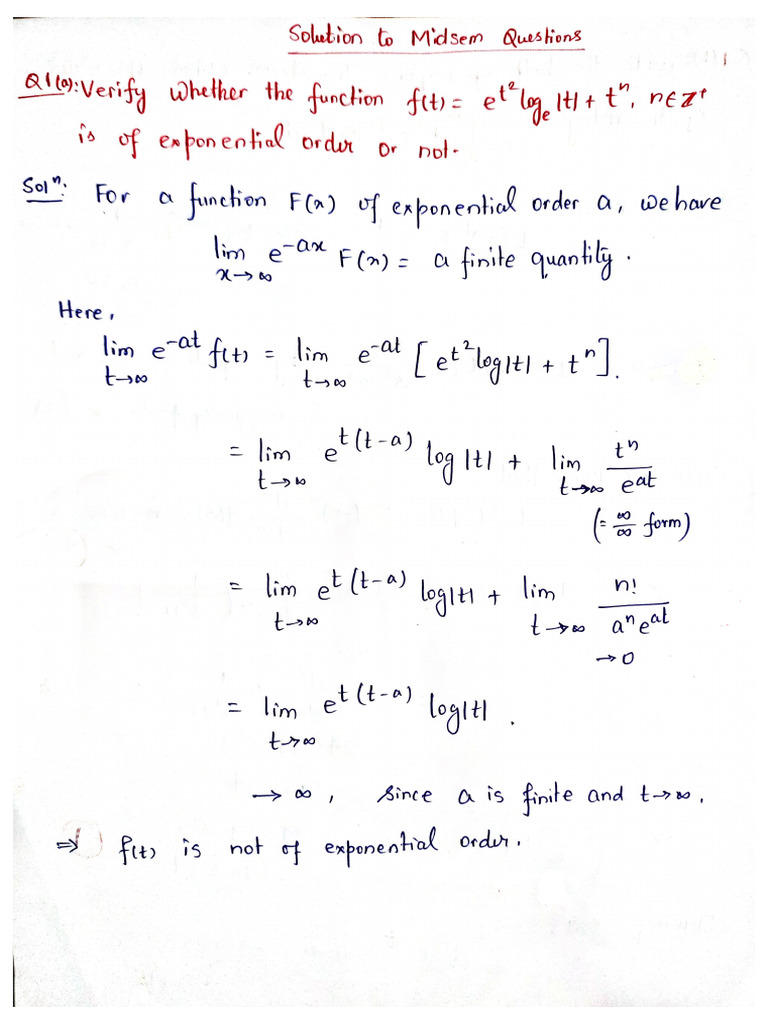 Solution to Midsem Questions
Q1(a): Verify whether the function f(t) = e^{t^2} log_e |t| + t^n, n ∈ Z^+
is of exponential order or not.
Sol^n: For a function F(x) of exponential order a, we have
lim_{x→∞} e^{-ax} F(x) = a finite quantity.
Here,
lim_{t→∞} e^{-at} f(t) = lim_{t→∞} e^{-at} [e^{t^2} log|t| + t^n].
= lim_{t→∞} e^{t(t-a)} log|t| + lim_{t→∞} t^n / e^{at}
(= ∞/∞ form)
= lim_{t→∞} e^{t(t-a)} log|t| + lim_{t→∞} n! / a^n e^{at}
→0
= lim_{t→∞} e^{t(t-a)} log|t|.
→ ∞, since a is finite and t→∞.
⇒ f(t) is not of exponential order.